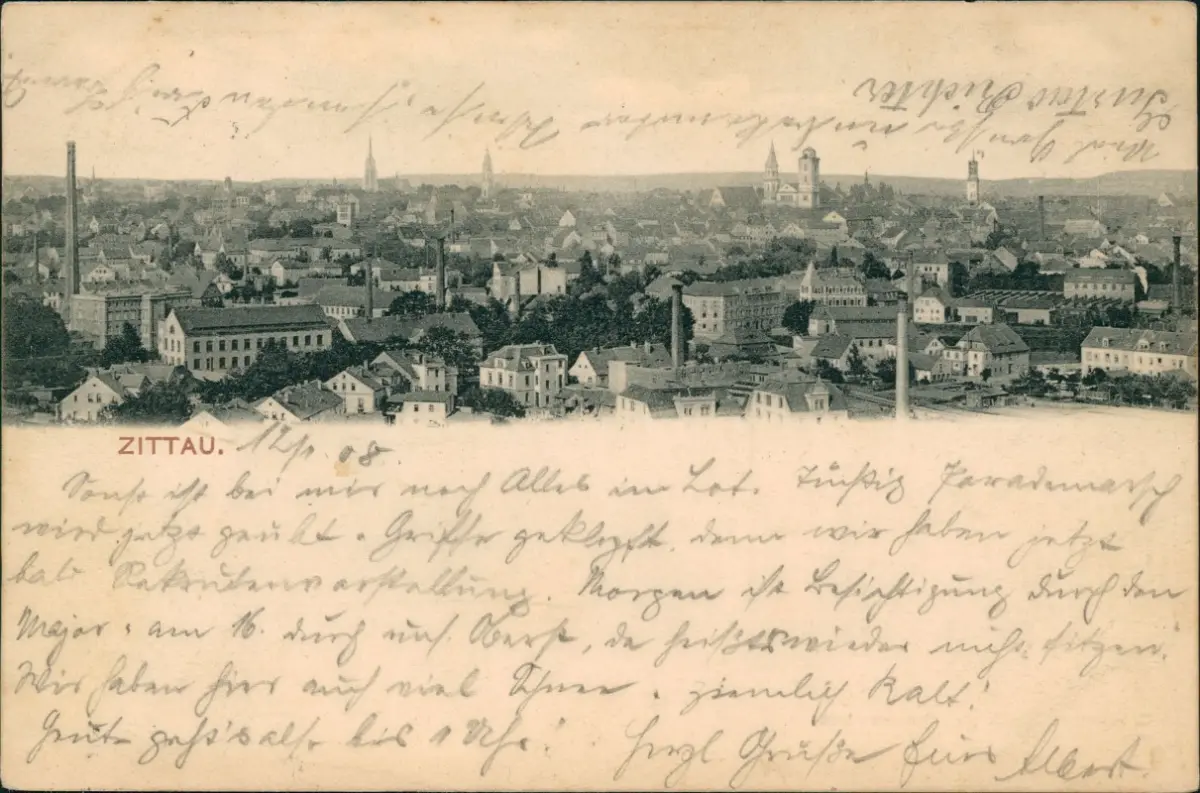 ZITTAU. 12/1. 08
Sonst ist bei mir noch Alles im Lot. Tüchtig Parademarsch
wird jetzt geübt u. Griffe geklopft, denn wir haben jetzt
bald Rekrutenvorstellung. Morgen ist Besichtigung durch den
Major u. am 16. durch uns. Oberst, da heißts wieder nicht sitzen.
Wir haben hier auch viel Schnee u. ziemlich Kalt!
Heute geht's also bis 1 Uhr! Herzl. Grüße Euer Albert.
Gustav Richter